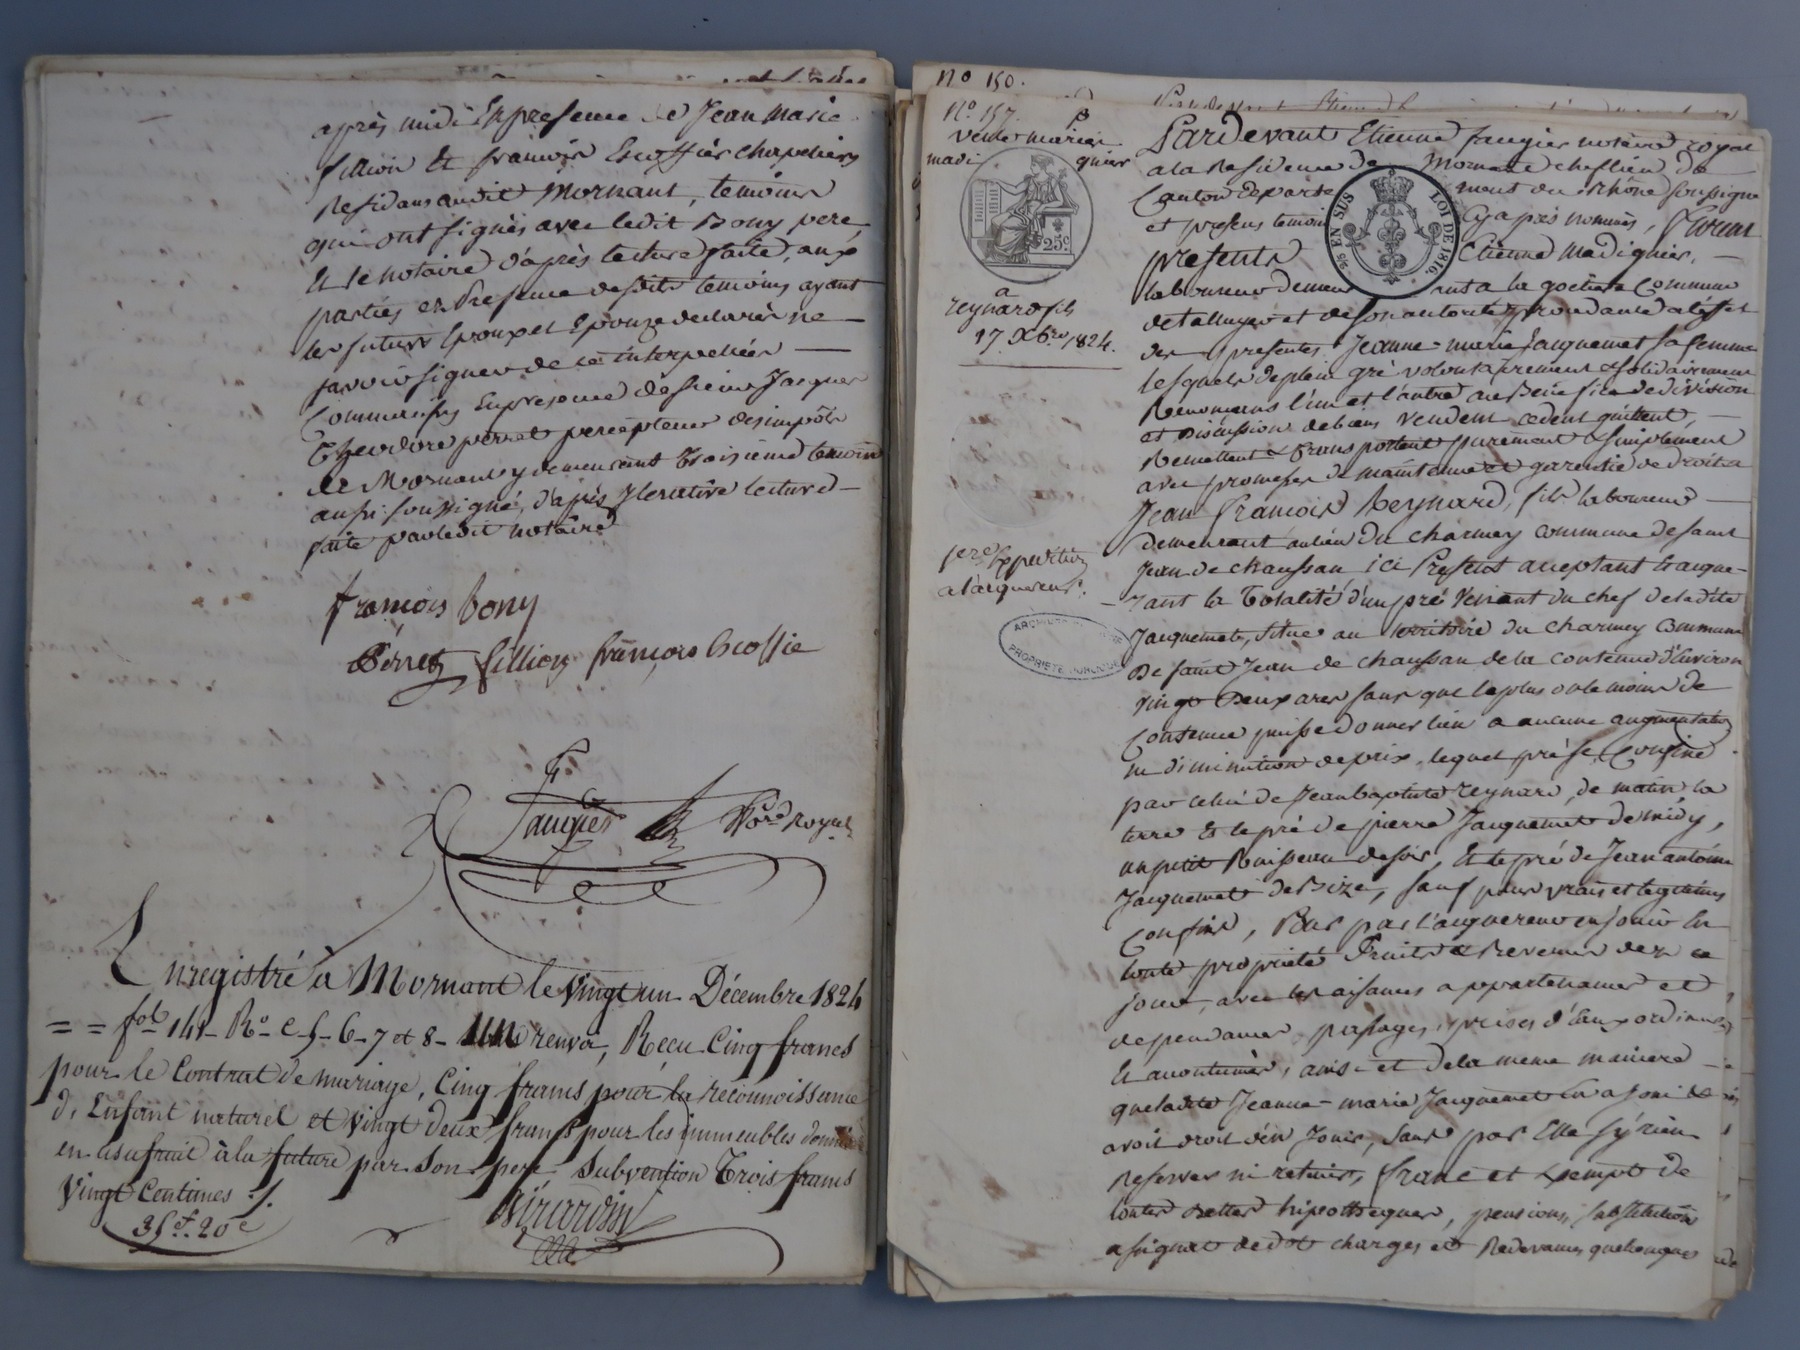 après midi En presence de Jean Marie
fillion Et francois Escoffier chapeliers
Residans audit Mornant, temoins
qui ont signés avec ledit Bony pere,
Et le notaire d'après lecture faite, aux
parties en Presence desdits temoins ayant
les futurs Epoux et Epouze declarés ne
savoir signer de ce interpellés
Commencés En presence de sieur Jacques
Theodore perret percepteur des impôts
de Mornant y demeurant troisieme temoin
aussi soussigné, d'après Iterative lecture
faite par ledit notaire
francois bony
Perret fillion françois Escoffie
faugier Nore Royal
Enregistré à Mornant le vingt un Décembre 1824
= = fol 141 Ro C 5 - 6 - 7 et 8 - renvoi, Recu Cinq francs
pour le Contrat de mariage, Cinq francs pour la reconnoissance
d'Enfant naturel et vingt deux francs pour les immeubles donnés
en usufruit à la future par son pere, Subvention Trois francs
vingt Centimes ./.
35f. 20c
Girardin
No 150.
No. 157.
vente marier
madi gnier
25c.
a
reynard fils
17 Xbre 1824.
1ere Expedition
a l'acquereur.
ARCHIVES
PROPRIETE PUBLIQUE
Pardevant Etienne faugier notaire royal
a la Residence de Mornant cheflieu de
Canton departement du Rhône soussigné
et presens temoins Cy après nommés, Furent
presents Etienne Madignier,
laboureur demeurant a la goctiere Commune
de talluyer et de son autorité procedante a l'effet
des presentes Jeanne-marie Jacquemet sa femme
lesquels de plein gré volontairement & solidairement
Renoncans l'un et l'autre au Benefice de division
et Discussion de biens vendent cedent quittent,
Remettent & transportent purement & simplement
avec promesse de maintenue et garentie de droit a
Jean francois Reynard, fils laboureur
demeurant au lieu du charmey commune de saint
Jean de chaussan ici Present acceptant & acque-
rant la Totalité d'un pré Venant du chef de ladite
Jacquemet, situé au territoire du charmey Commune
De saint Jean de chaussan de la contenue d'Environ
vingt Deux ares sans que le plus ou le moins de
Contenue puisse donner lieu a aucune augmentation
ni diminution de prix, lequel pré se Confine
par celui de Jean baptiste reynard, de matin, la
terre Et le pré de pierre Jacquemet de midy,
un petit Ruisseau de soir, Et le pré de Jean antoine
Jacquemet de Bize, sauf plus vrais et legitimes
Confins, Pour par l'acquereur en Jouir En
toute propriété Fruits & Revenus dez ce
jour, avec les aisances appartenances et
dependances passages, prises d'Eaux ordinaires
Et accoutumés, ainsi et de la meme maniere
que ladite Jeanne-marie Jacquemet En a joui &
avoit droit d'en Jouir, sans par Elle s'y rien
Reserver ni retenir, franc et Exempt de
toutes dettes hipotheques, pensions, substitution
assignat de dot charges et Redevances quelconques
EN SUS
LOI DE 1816.